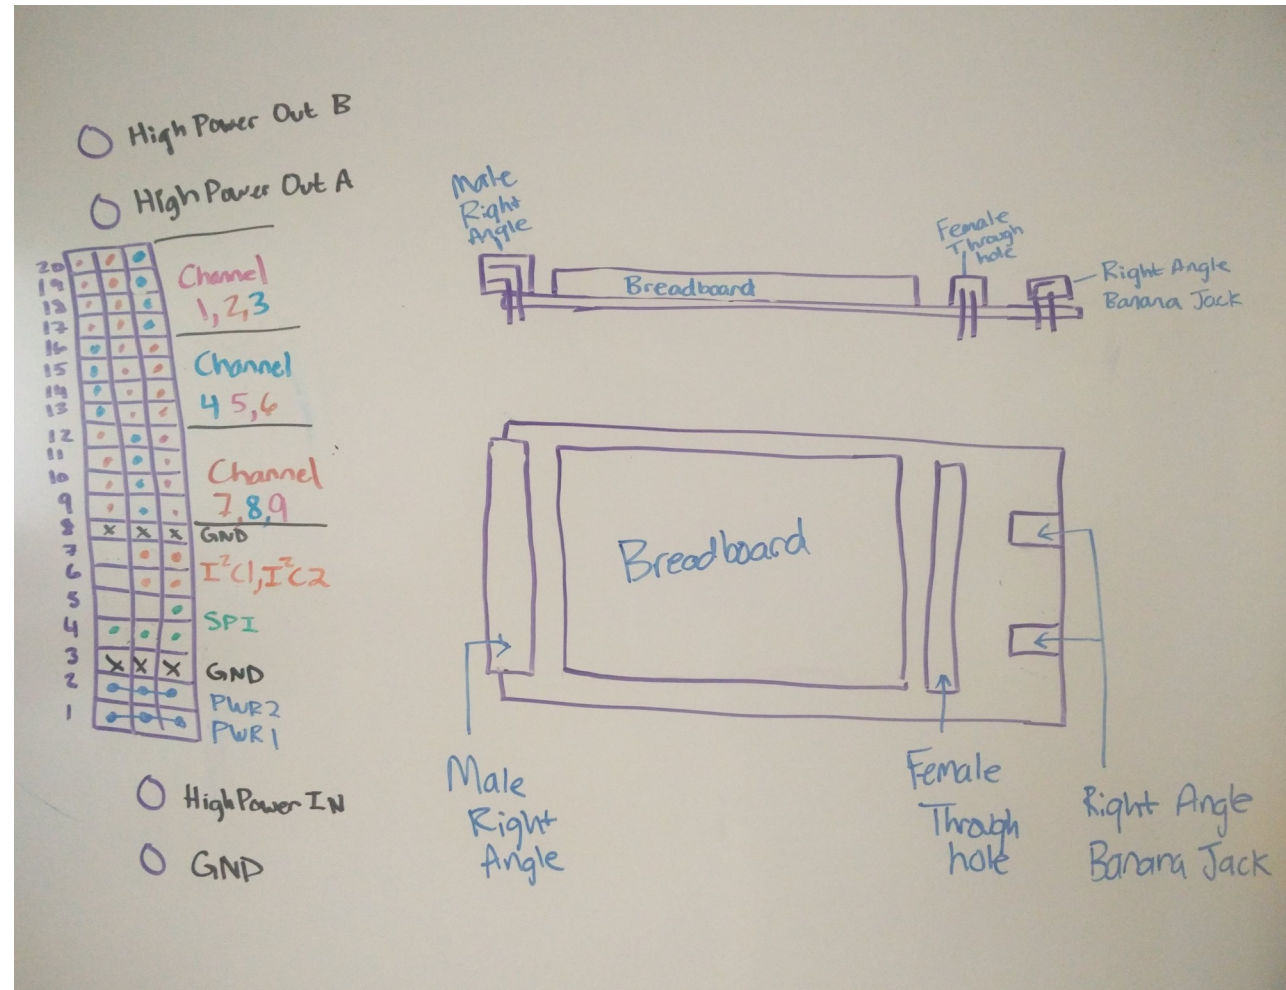 High Power Out B
High Power Out A
20
19
18
17
16
15
14
13
12
11
10
9
8
7
6
5
4
3
2
1
Channel
1,2,3
Channel
4 5,6
Channel
7,8,9
GND
I²C1,I²C2
SPI
GND
PWR2
PWR1
High Power IN
GND
Male
Right
Angle
Breadboard
Female
Through
hole
Right Angle
Banana Jack
Breadboard
Male
Right
Angle
Female
Through
hole
Right Angle
Banana Jack